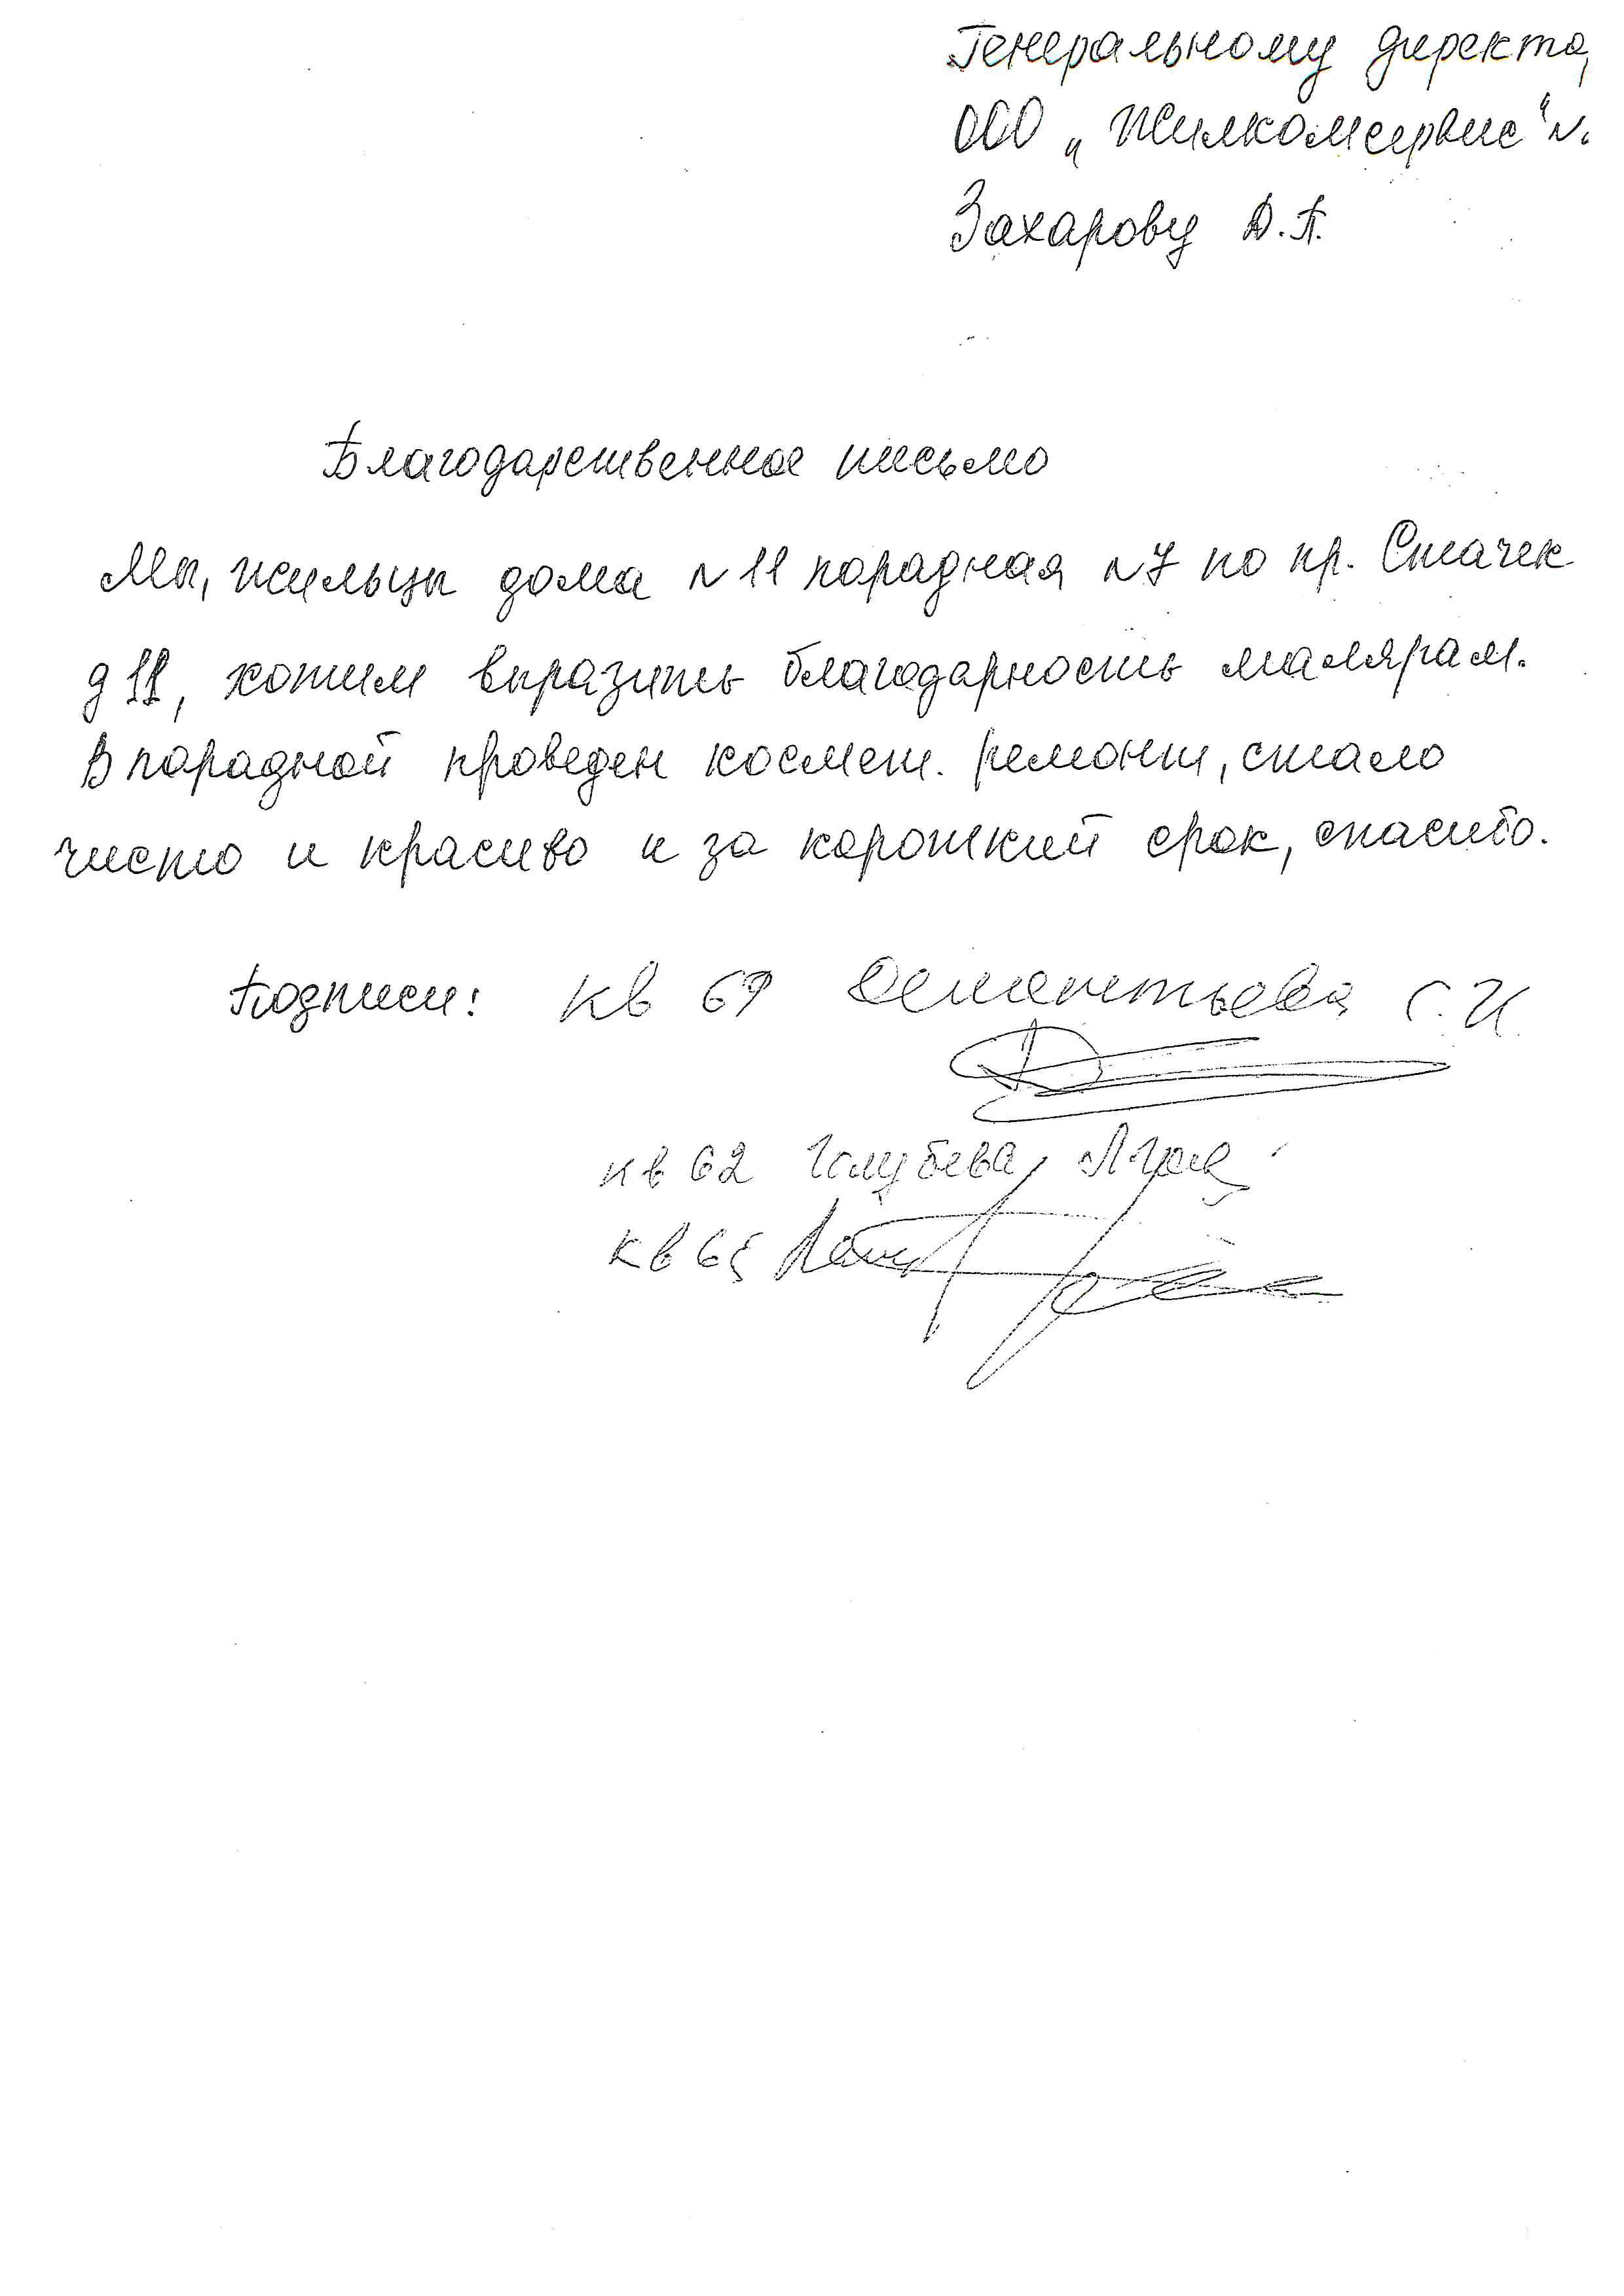 Генеральному директо
ООО „Жилкомсервис" N.
Захарову Д.П.
Благодарственное письмо
Мы, жильцы дома N 11 порадная N7 по пр. Стачек
д 11, хотим выразить благодарность малярам.
В порадной проведен космет. ремонт, стало
чисто и красиво и за короткий срок, спасибо.
Подписи: кв 69 Дементьева С.И.
кв 62 Голубева
кв 65